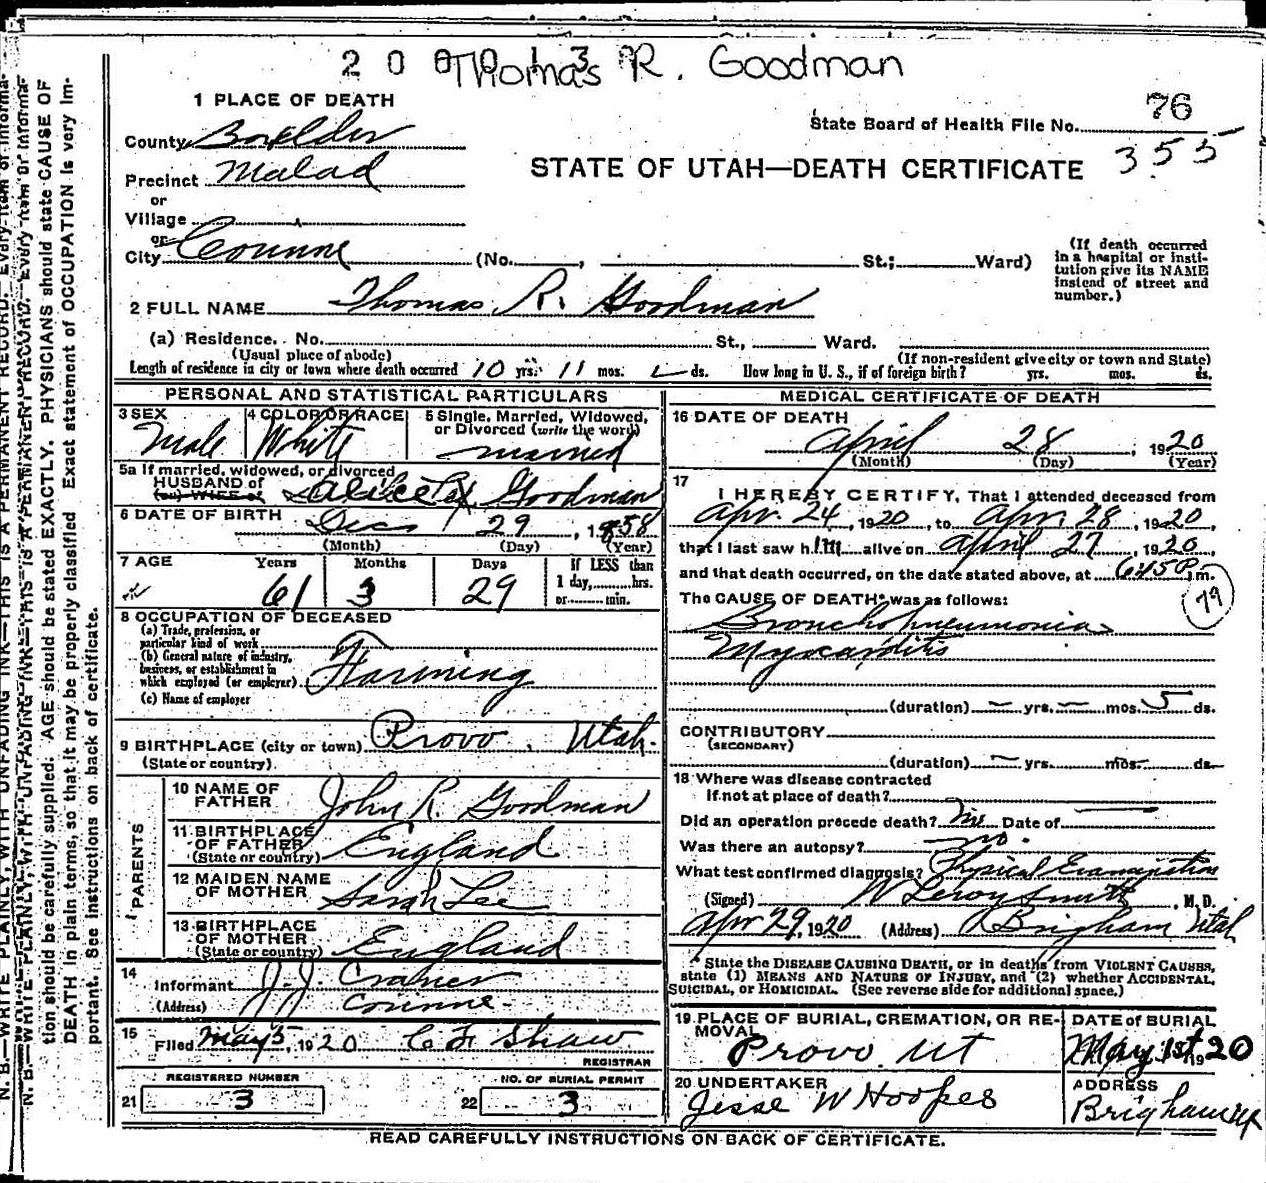 2 0 0 0 1 3
Thomas R. Goodman
1 PLACE OF DEATH
County Boxelder
State Board of Health File No. 76
355
Precinct Malad
STATE OF UTAH—DEATH CERTIFICATE
or
Village
or
City Corinne (No. , St.; Ward)
(If death occurred
in a hospital or insti-
tution give its NAME
instead of street and
number.)
2 FULL NAME Thomas R. Goodman
(a) Residence. No. St., Ward.
(Usual place of abode)
(If non-resident give city or town and State)
Length of residence in city or town where death occurred 10 yrs. 11 mos. ds. How long in U. S., if of foreign birth? yrs. mos. ds.
PERSONAL AND STATISTICAL PARTICULARS
3 SEX
Male
4 COLOR OR RACE
White
5 Single, Married, Widowed,
or Divorced (write the word)
married
5a If married, widowed, or divorced
HUSBAND of
(or) WIFE of
Goodman
6 DATE OF BIRTH Dec 29, 1858
(Month) (Day) (Year)
7 AGE Years Months Days If LESS than
61 3 29 1 day, hrs.
or min.
8 OCCUPATION OF DECEASED
(a) Trade, profession, or
particular kind of work
(b) General nature of industry,
business, or establishment in
which employed (or employer) Farming
(c) Name of employer
9 BIRTHPLACE (city or town) Provo, Utah.
(State or country)
PARENTS
10 NAME OF
FATHER John R. Goodman
11 BIRTHPLACE
OF FATHER
(State or country) England
12 MAIDEN NAME
OF MOTHER Sarah Lee
13 BIRTHPLACE
OF MOTHER
(State or country) England
14
Informant J. J. Cramer
(Address) Corinne.
15
Filed May 5, 1920 C F Shaw
REGISTRAR
REGISTERED NUMBER
21 3
NO. OF BURIAL PERMIT
22 3
MEDICAL CERTIFICATE OF DEATH
16 DATE OF DEATH
April 28, 1920
(Month) (Day) (Year)
17
I HEREBY CERTIFY, That I attended deceased from
Apr. 24, 1920, to Apr. 28, 1920,
that I last saw him alive on April 27, 1920,
and that death occurred, on the date stated above, at 6:45 P.m.
The CAUSE OF DEATH* was as follows:
79
Bronchopneumonia
Myocarditis
(duration) yrs. mos. 5 ds.
CONTRIBUTORY
(SECONDARY)
(duration) yrs. mos. ds.
18 Where was disease contracted
if not at place of death?
Did an operation precede death? no Date of
Was there an autopsy? no.
What test confirmed diagnosis? Physical Examination
(Signed) W Leroy Smith, M. D.
Apr 29, 1920 (Address) Brigham Utah
*State the DISEASE CAUSING DEATH, or in deaths from VIOLENT CAUSES,
state (1) MEANS AND NATURE OF INJURY, and (2) whether ACCIDENTAL,
SUICIDAL, or HOMICIDAL. (See reverse side for additional space.)
19 PLACE OF BURIAL, CREMATION, OR RE-
MOVAL
Provo Ut
DATE of BURIAL
May 1st 1920
20 UNDERTAKER
Jesse W Hoopes
ADDRESS
Brigham Ut
READ CAREFULLY INSTRUCTIONS ON BACK OF CERTIFICATE.
N. B.—WRITE PLAINLY, WITH UNFADING INK—THIS IS A PERMANENT RECORD. Every item of informa-
tion should be carefully supplied. AGE should be stated EXACTLY. PHYSICIANS should state CAUSE OF
DEATH in plain terms, so that it may be properly classified. Exact statement of OCCUPATION is very im-
portant. See instructions on back of certificate.